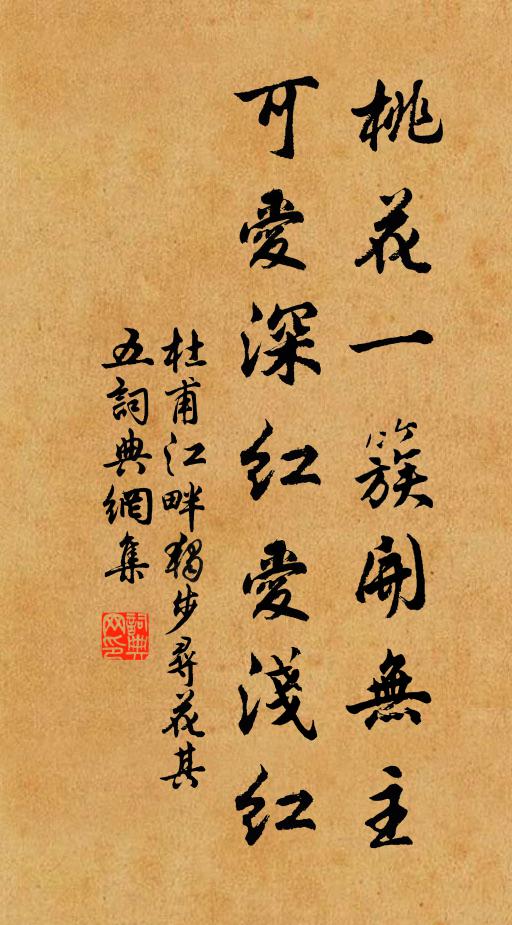 桃花一簇開無主
可愛深紅愛淺紅
杜甫江畔獨步尋花其
五詞典網集
詞典
网印